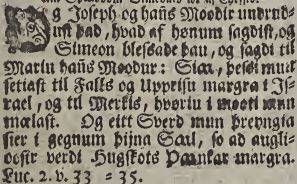 Og Joseph og hañs Moodir undrud-
ust þad, hvad af hønum sagdist, og
Simeon blessade þau, og sagdi til
Mariu hañs Moodur: Siaa, þesse mun
setiast til Falls og Uppresu margra i Js-
rael, og til Merkis, hvøriu i mooti mun
mælast. Og eitt Sverd mun þreyngia
sier i gegnum þijna Saal, so ad augli-
oosir verdi Hugskots Þaankar margra.
Luc. 2. v. 33 = 35.